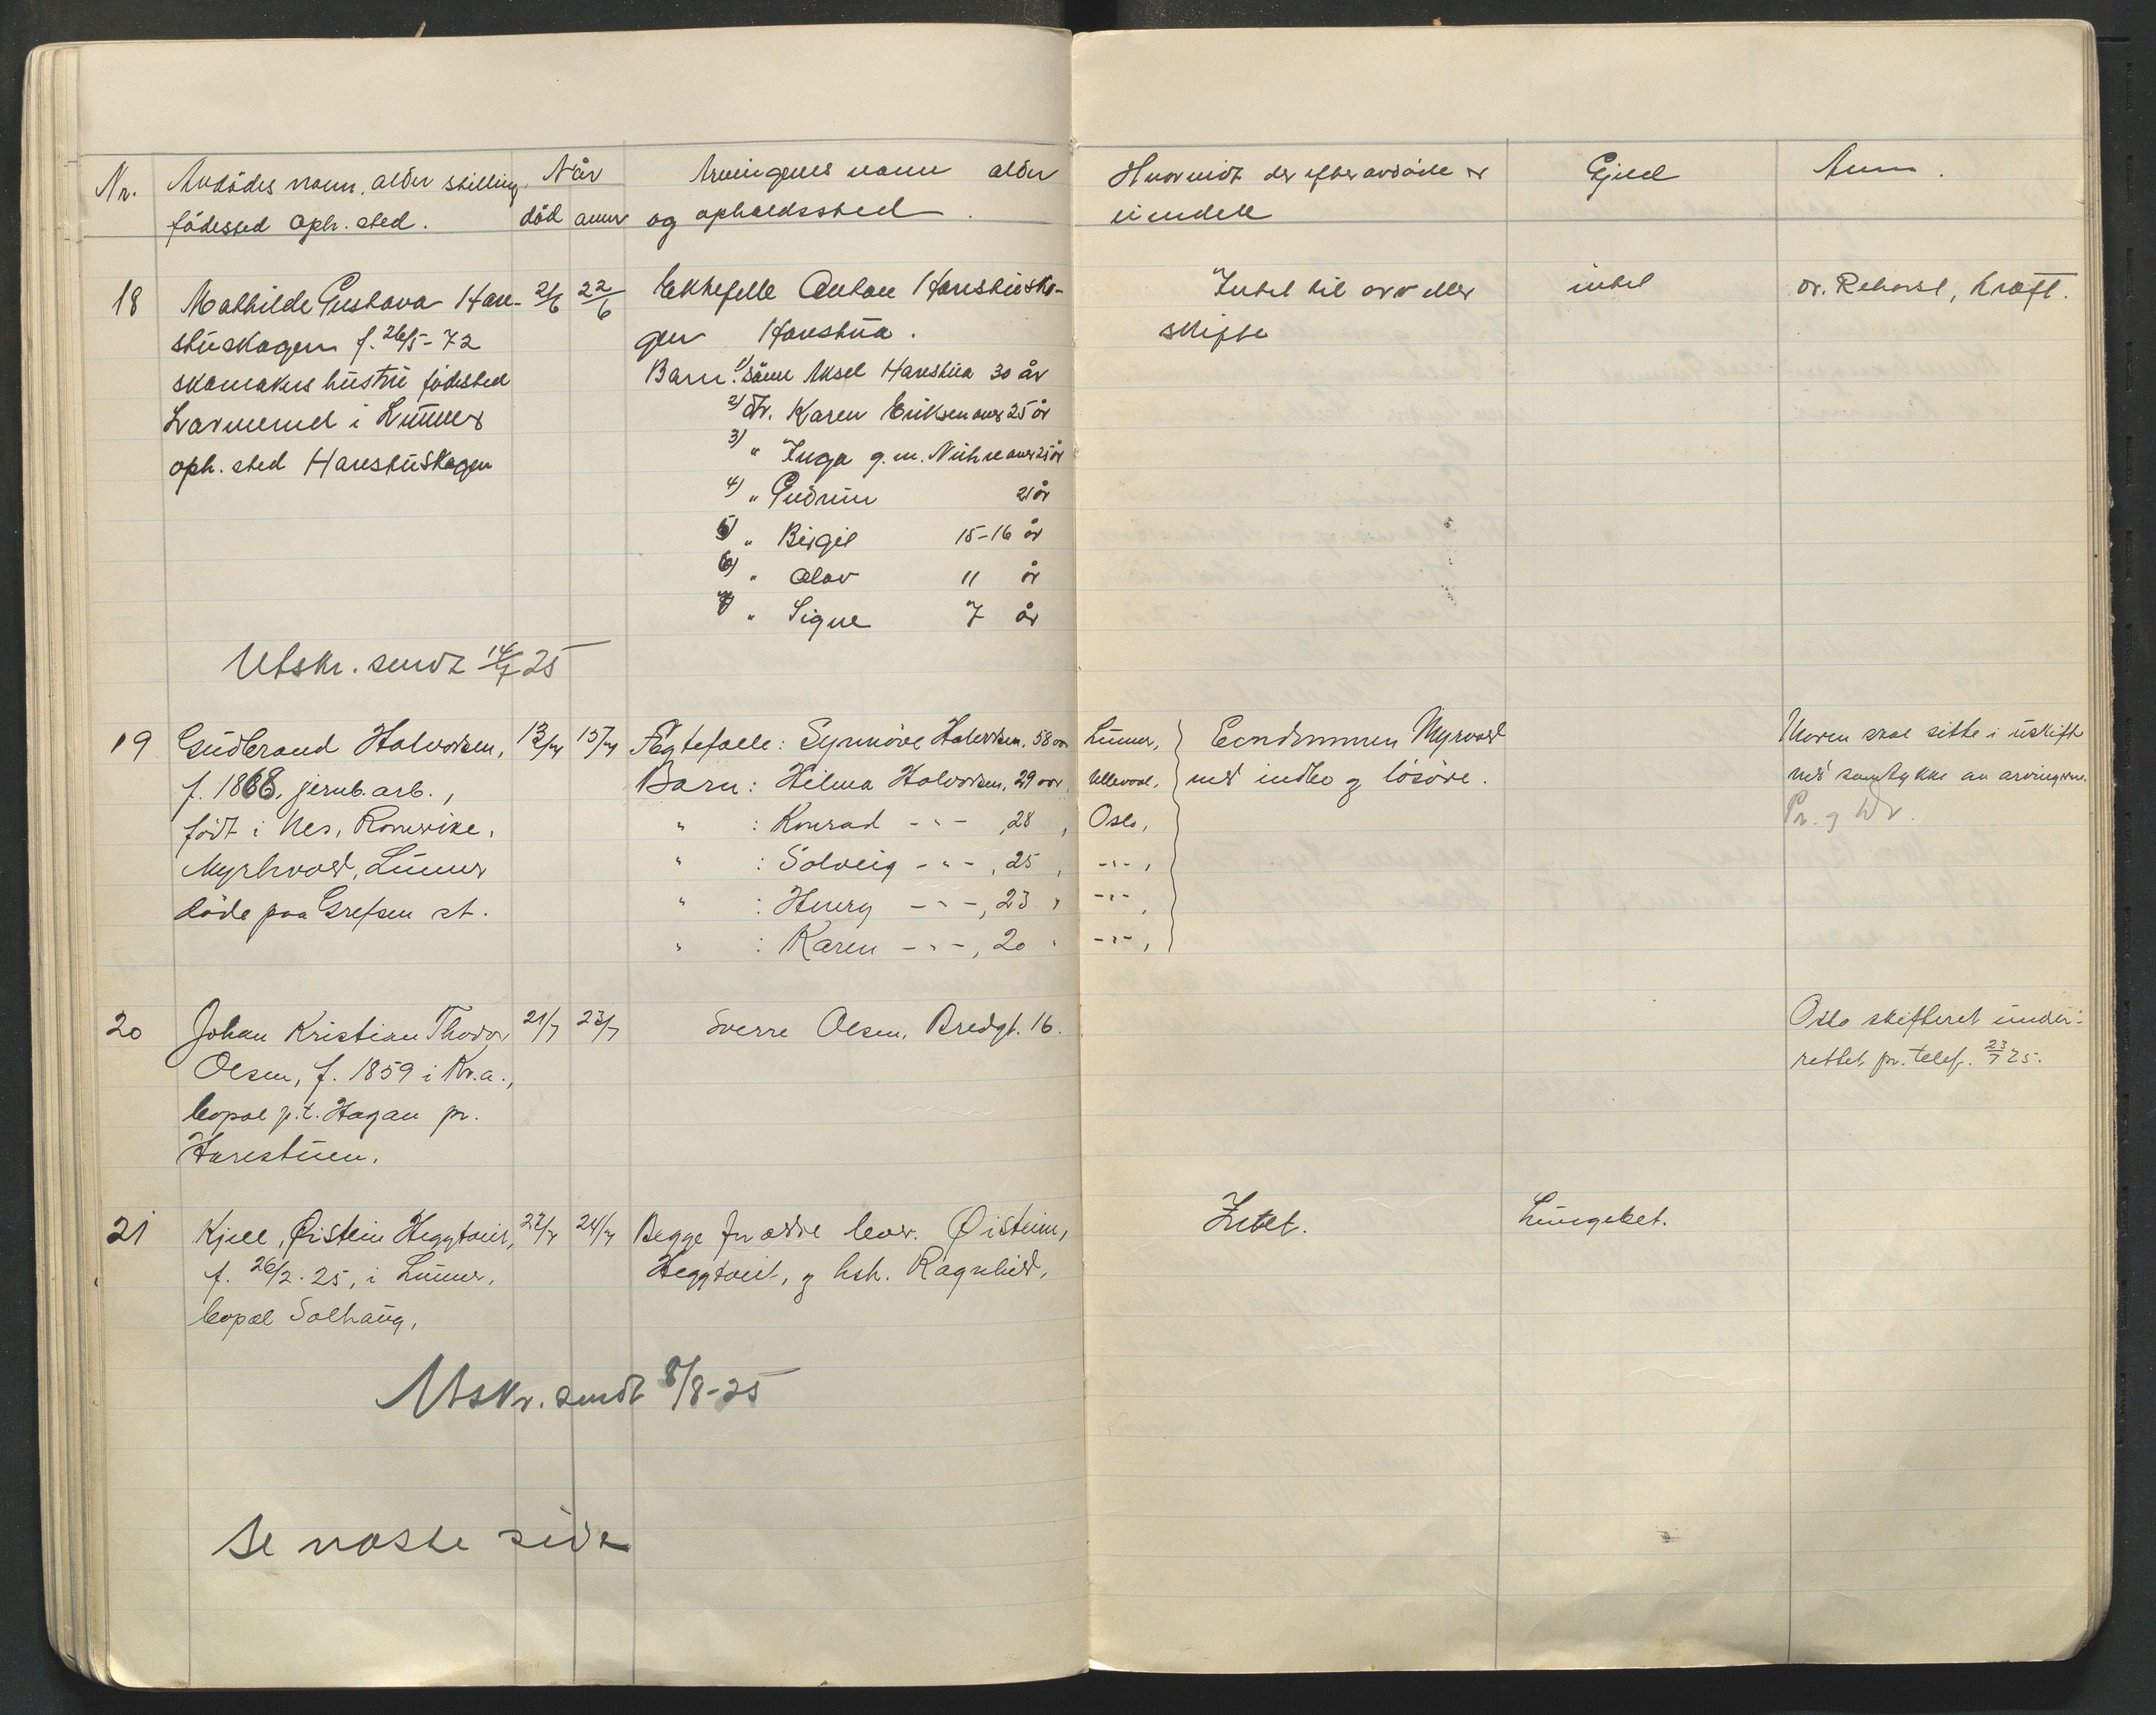 Nr. Avdödes navn, alder stilling, Når Arvingenes navn alder Hvorvidt der efter avdöde er Gjeld Anm.
födested oph. sted. död anm og opholdssted. eiendele
18 Mathilde Gustava Hare- 21/6 22/6 Ektefelle Anton Harestusko- Intet til arv eller intet dr. Rehorst, kræft.
stuskogen f. 26/5-72 gen Harestua. skifte
skomakers hustru födested Barn: 1) sönn Aksel Harestua 30 år
i Lunner 2) dtr. Karen Eriksen over 25 år
oph. sted Harestuskogen 3) " Inga g.m. over 25 år
4) " Gudrun 21 år
5) " Birgit 15-16 år
6) " Olav 11 år
7) " Signe 7 år
Utskr. sendt 14/7 25
19 Gudbrand Halvorsen, 13/7 15/7 Ægtefælle: Synnöve Halvorsen, 58 aar Lunner, Eiendommen Myrvold Moren skal sitte i uskifte
f. 1868, jernb. arb., Barn: Hilma Halvorsen, 29 aar, Ullevaal, med indbo og lösöre. med samtykke av arvingerne.
födt i Nes, Romerike, " : Konrad -"- , 28 , Oslo, Pr. og
Myrhvold, Lunner " : Solveig -"- , 25 , -"-,
döde paa Grefsen st. " : Henry -"-, 23 , -"-,
" : Karen -"-, 20 " -"-,
20 Johan Kristian Thodor 21/7 23/7 Sverre Olsen, Bredgt. 16. Oslo skifteret under-
Olsen, f. 1859 i Kr.a., rettet pr. telef. 23/7 25.
bopæl p.t. Hagan pr.
Harestuen.
21 Kjell, Øistein Heggtveit, 22/7 24/7 Begge foreldre lever. Øistein, Intet. Lungebet.
f. 26/2.25, i Lunner, Heggtveit, og hsh. Ragnhild,
bopæl Solhaug,
Utskr. sendt 8/8-25
Se næste side